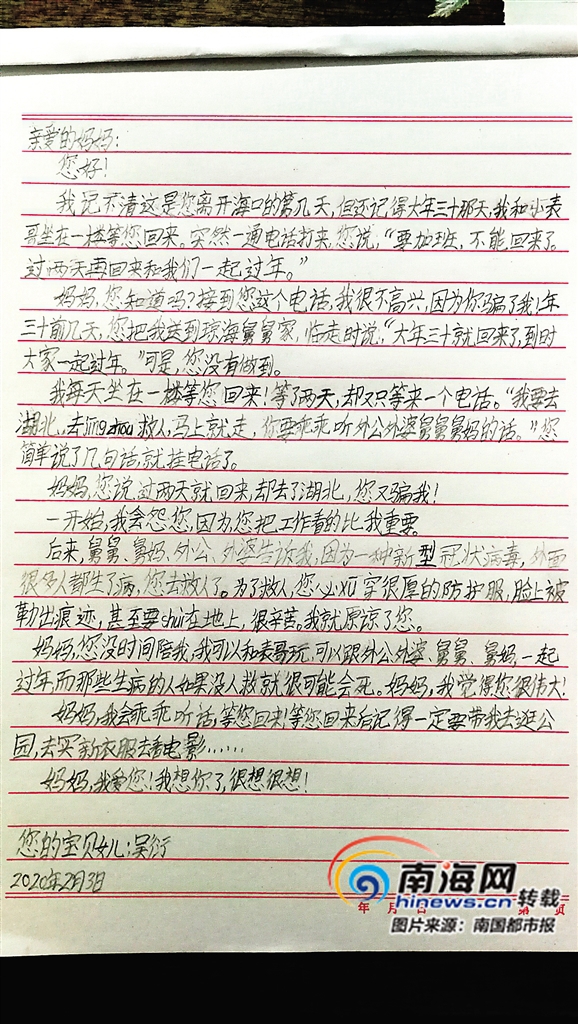 亲爱的妈妈：
您好！
我记不清这是您离开海口的第几天，但还记得大年三十那天，我和小表
哥坐在一楼等您回来。突然一通电话打来，您说，“要加班，不能回来了。
过两天再回来和我们一起过年。”
妈妈，您知道吗？接到您这个电话，我很不高兴，因为你骗了我！年
三十前几天，您把我送到琼海舅舅家，临走时说，“大年三十就回来了，到时
大家一起过年。”可是，您没有做到。
我每天坐在一楼等您回来！等了两天，却又只等来一个电话。“我要去
湖北，去jīng zhou救人，马上就走，你要乖乖听外公外婆舅舅舅妈的话。”您
简单说了几句话，就挂电话了。
妈妈，您说，过两天就回来，却去了湖北，您又骗我！
一开始，我会怨您，因为您把工作看的比我重要。
后来，舅舅、舅妈、外公、外婆告诉我，因为一种新型冠状病毒，外面
很多人都生了病，您去救人了。为了救人，您必xū穿很厚的防护服，脸上被
勒出痕迹，甚至要shuì在地上，很辛苦。我就原谅了您。
妈妈，您没时间陪我，我可以和表哥玩，可以跟外公外婆、舅舅、舅妈一起
过年，而那些生病的人如果没人救就很可能会死。妈妈，我觉得您很伟大！
妈妈，我会乖乖听话，等您回来！等您回来后记得一定要带我去逛公
园，去买新衣服去看电影……
妈妈，我爱您！我想你了，很想很想！
您的宝贝女儿：吴衍
2020年2月3日
年 月 日 第 页
南海网
hinews.cn 转载
图片来源：南国都市报